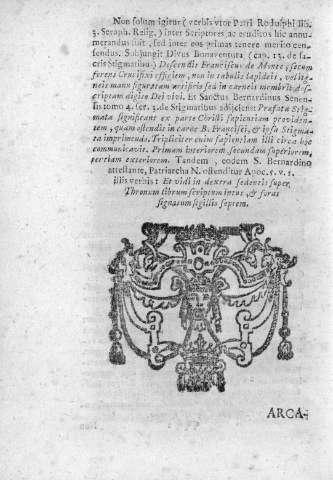 Non solum igitur ( verbis vtor Patri Rodulphi lib.
3. Seraph. Relig. ) inter Scriptores ac eruditos hic annu-
merandus fuit, sed inter eos primas tenere merito cen-
sendus. Subjungit Divus Bonaventura ( cap. 13. de sa-
cris Stigmatibus ) Descendit Franciscus de Monte, secum
ferens Crucifixi effigiem, non in tabulis lapideis, vel lig-
neis manu figuratam artificis sed in carneis membris de-
scriptam digito Dei vivi. Et Sanctus Bernardinus Senen-
sis tomo 4. ser. de Stigmatibus adjiciens: Prafata Stig-
mata significant ex parte Christi sapientiam providen-
tem, quam ostendit in carne B. Francisci, & ipsa Stigma-
ta imprimendo. Tripliciter enim sapientiam illi circa hoc
communicavit. Primam interiorem, secundam superiorem,
tertiam exteriorem. Tandem, eodem S. Bernardino
attestante, Patriarcha N. ostenditur Apoc. 5. v. 1.
illis verbis: Et vidi in dextra sedentis super
Thronum librum scriptum intus, & foras
signatum sigillis septem.
ARCA-